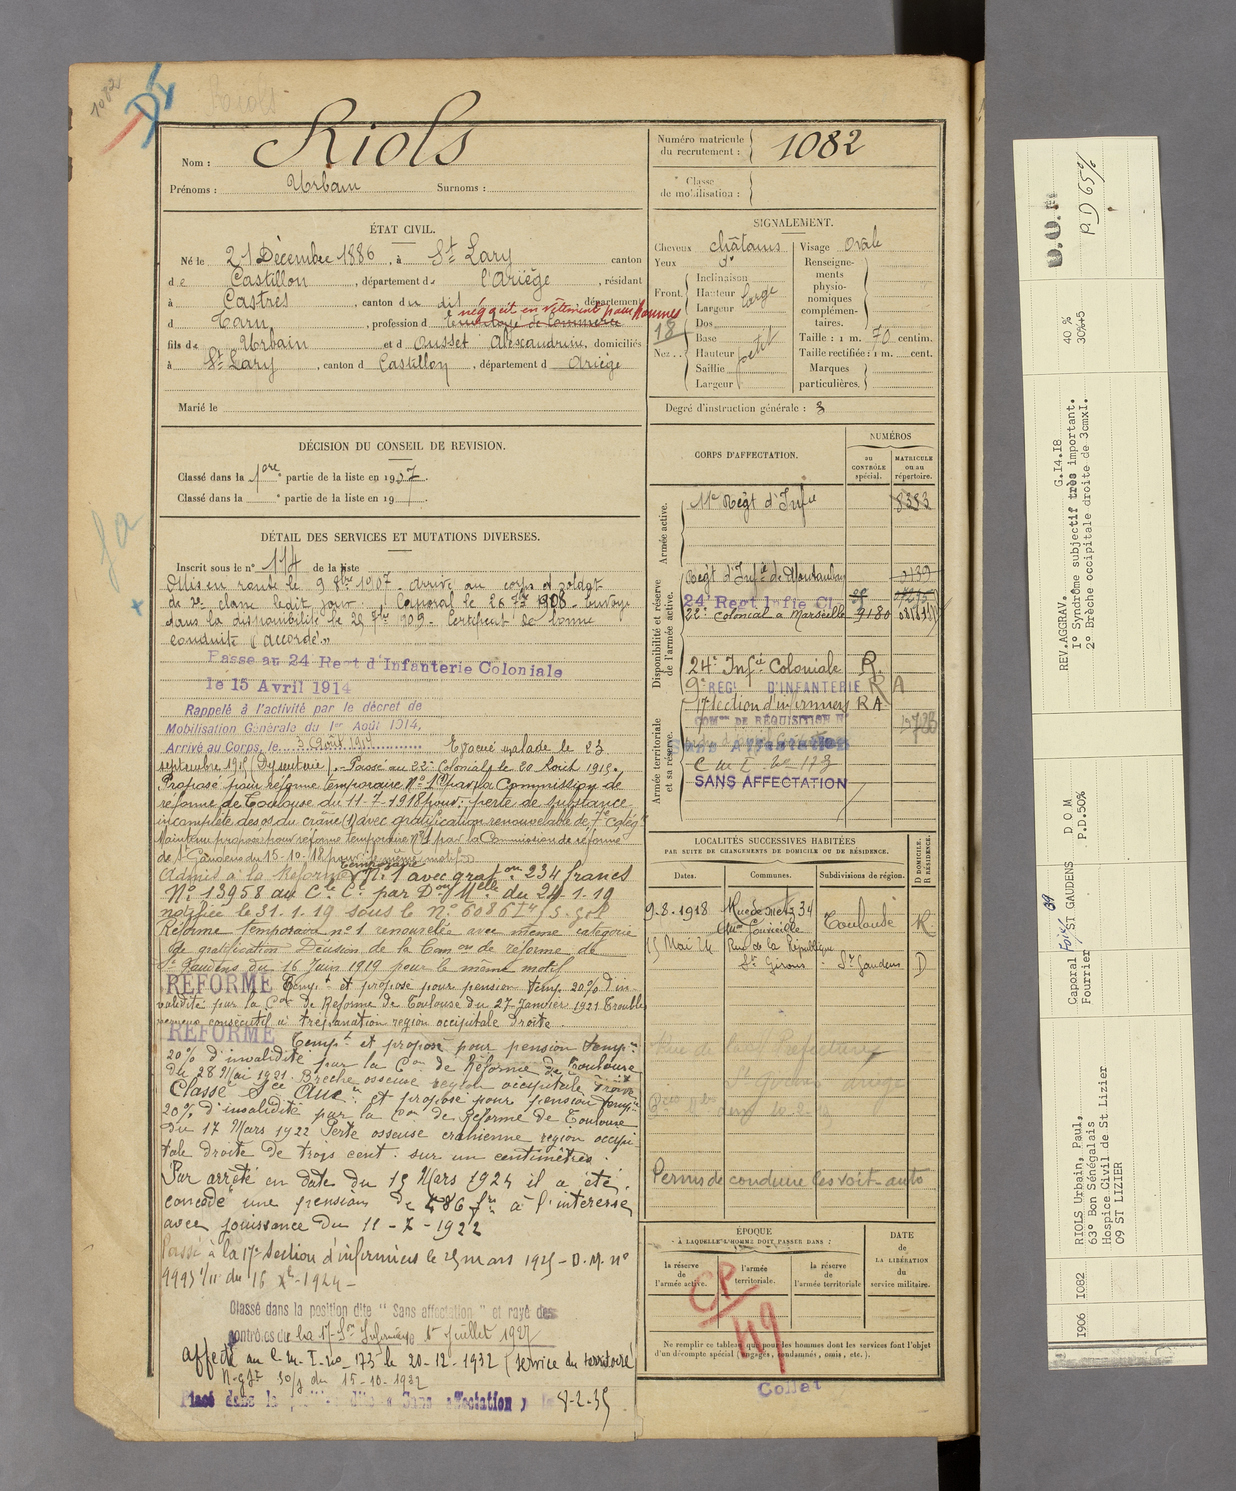 1082
Riols
Nom : Riols
Prénoms : Urbain Surnoms :
ÉTAT CIVIL.
Né le 21 Décembre 1886, à St Lary canton
de Castillon, département de l'Ariège, résidant
à Castres, canton du dit, département
négocit en vêtement pour hommes
d Tarn, profession d' Employé de Commerce
fils de Urbain et d Ousset Alexandrine, domiciliés
à St Lary, canton d Castillon, département d Ariège
Marié le
DÉCISION DU CONSEIL DE REVISION.
Classé dans la 1ère partie de la liste en 1907.
Classé dans la ° partie de la liste en 19
DÉTAIL DES SERVICES ET MUTATIONS DIVERSES.
Inscrit sous le n° 114 de la liste
Mis en route le 9 8bre 1907 - arrivé au corps et soldat
de 2e classe ledit jour. Caporal le 26 7bre 1908. Envoyé
dans la disponibilité le 25 7bre 1909. Certificat de bonne
conduite "accordé"
Passé au 24 Regt d'Infanterie Coloniale
le 15 Avril 1914
Rappelé à l'activité par le décret de
Mobilisation Générale du 1er Août 1914,
Arrivé au Corps, le 3 Août 1914 Evacué malade le 23
septembre 1915 (Dysenterie). - Passé au 22e Colonial le 20 Août 1915.
Proposé pour réforme temporaire N° 1 par la Commission de
réforme de Toulouse du 11-7-1918 pour : perte de substance
incomplète des os du crâne avec gratification renouvelable de 7e catég
Maintenu proposé pour réforme temporaire n°1 par la Commission de réforme
de St Gaudens du 15-10-18 pour le même motif
Admis à la Réforme temporaire N° 1 avec grat on 234 francs
N° 13958 au Cle Cl par Don Melle du 24-1-19
notifiée le 31.1.19 sous le N° 6086
Réforme temporaire n° 1 renouvelée avec même catégorie
de gratification Décision de la Com on de réforme de
St Gaudens du 16 Juin 1919 pour le même motif
REFORMÉ Tempre et proposé pour pension temp. 20% d'in-
validité par la Con de Réforme de Toulouse du 27 Janvier 1921 Troubles
nerveux consécutif à trépanation région occipitale droite.
REFORMÉ Tempre et proposé pour pension temp re
20% d'invalidité par la Con de Réforme de Toulouse
du 28 Mai 1921. Brèche osseuse région occipitale droite
Classé Sce Aux re et proposé pour pension temp re
20% d'invalidité par la Con de Réforme de Toulouse
du 17 Mars 1922 Perte osseuse cranienne région occipi-
tale droite de trois cent. sur un centimètres.
Par arrêté en date du 15 Mars 1924 il a été
concédé une pension de 486 frs à l'intéressé
avec jouissance du 11-7-1922
Passé à la 17e Section d'infirmiers le 25 mars 1925 - D.M. n°
9993 /11 du 16 Xbre 1924 -
Classé dans la position dite "Sans affectation" et rayé des
contrôles de la 17e Son Infirmiers 1er juillet 1927
affecté au C.M.I. no 173 le 20-12-1932 (service du territoire)
15-10-1932
Placé dans la position dite « Sans affectation » le 8-2-35
Numéro matricule
du recrutement : 1082
Classe
de mobilisation :
SIGNALEMENT.
Cheveux châtains
Yeux d°
Front. Inclinaison
Hauteur large
Largeur
18
Nez. Dos
Base
Hauteur petit
Saillie
Largeur
Visage Ovale
Renseigne-
ments
physio-
nomiques
complémen-
taires.
Taille : 1 m. 70 centim.
Taille rectifiée : 1 m. cent.
Marques
particulières.
Degré d'instruction générale : 3
CORPS D'AFFECTATION.
NUMÉROS
au
CONTRÔLE
spécial.
MATRICULE
ou au
répertoire.
Armée active.
11e Régt d'Infie 8383
Disponibilité et réserve
de l'armée active.
Régt d'Infie de Montauban
24 Regt Infie Cl
22e Colonial à Marseille 9180
24e Infie Coloniale R.
9e REGt D'INFANTERIE RA
17 section d'infirmiers RA
Armée territoriale
et sa réserve.
COMon DE RÉQUISITION N°
SANS AFFECTATION
C.M.I. no 173
SANS AFFECTATION
LOCALITÉS SUCCESSIVES HABITÉES
PAR SUITE DE CHANGEMENTS DE DOMICILE OU DE RÉSIDENCE.
Dates. Communes. Subdivisions de région. D DOMICILE. R RÉSIDENCE.
9-8-1918 Rue de Metz 34 Toulouse R
15 Mai 24 Rue de la République
St Girons St Gaudens D
Permis de conduire les voit-auto
ÉPOQUE
À LAQUELLE L'HOMME DOIT PASSER DANS :
la réserve
de
l'armée active.
l'armée
territoriale.
la réserve
de
l'armée territoriale
DATE
de
LA LIBÉRATION
du
service militaire.
CP
49
Ne remplir ce tableau que pour les hommes dont les services font l'objet
d'un décompte spécial (engagés, condamnés, omis, etc.).
Collat
1906 1082 RIOLS Urbain, Paul, Caporal Foix 09 ST GAUDENS D O M REV.AGGRAV. G.I4.I8 40 % D.O.M
63° Bon Sénégalais Fourrier P.D.50% 1° Syndrôme subjectif très important. 30%+5 P D 65%
Hospice Civil de St Lizier 2° Brèche occipitale droite de 3cmxI.
09 ST LIZIER